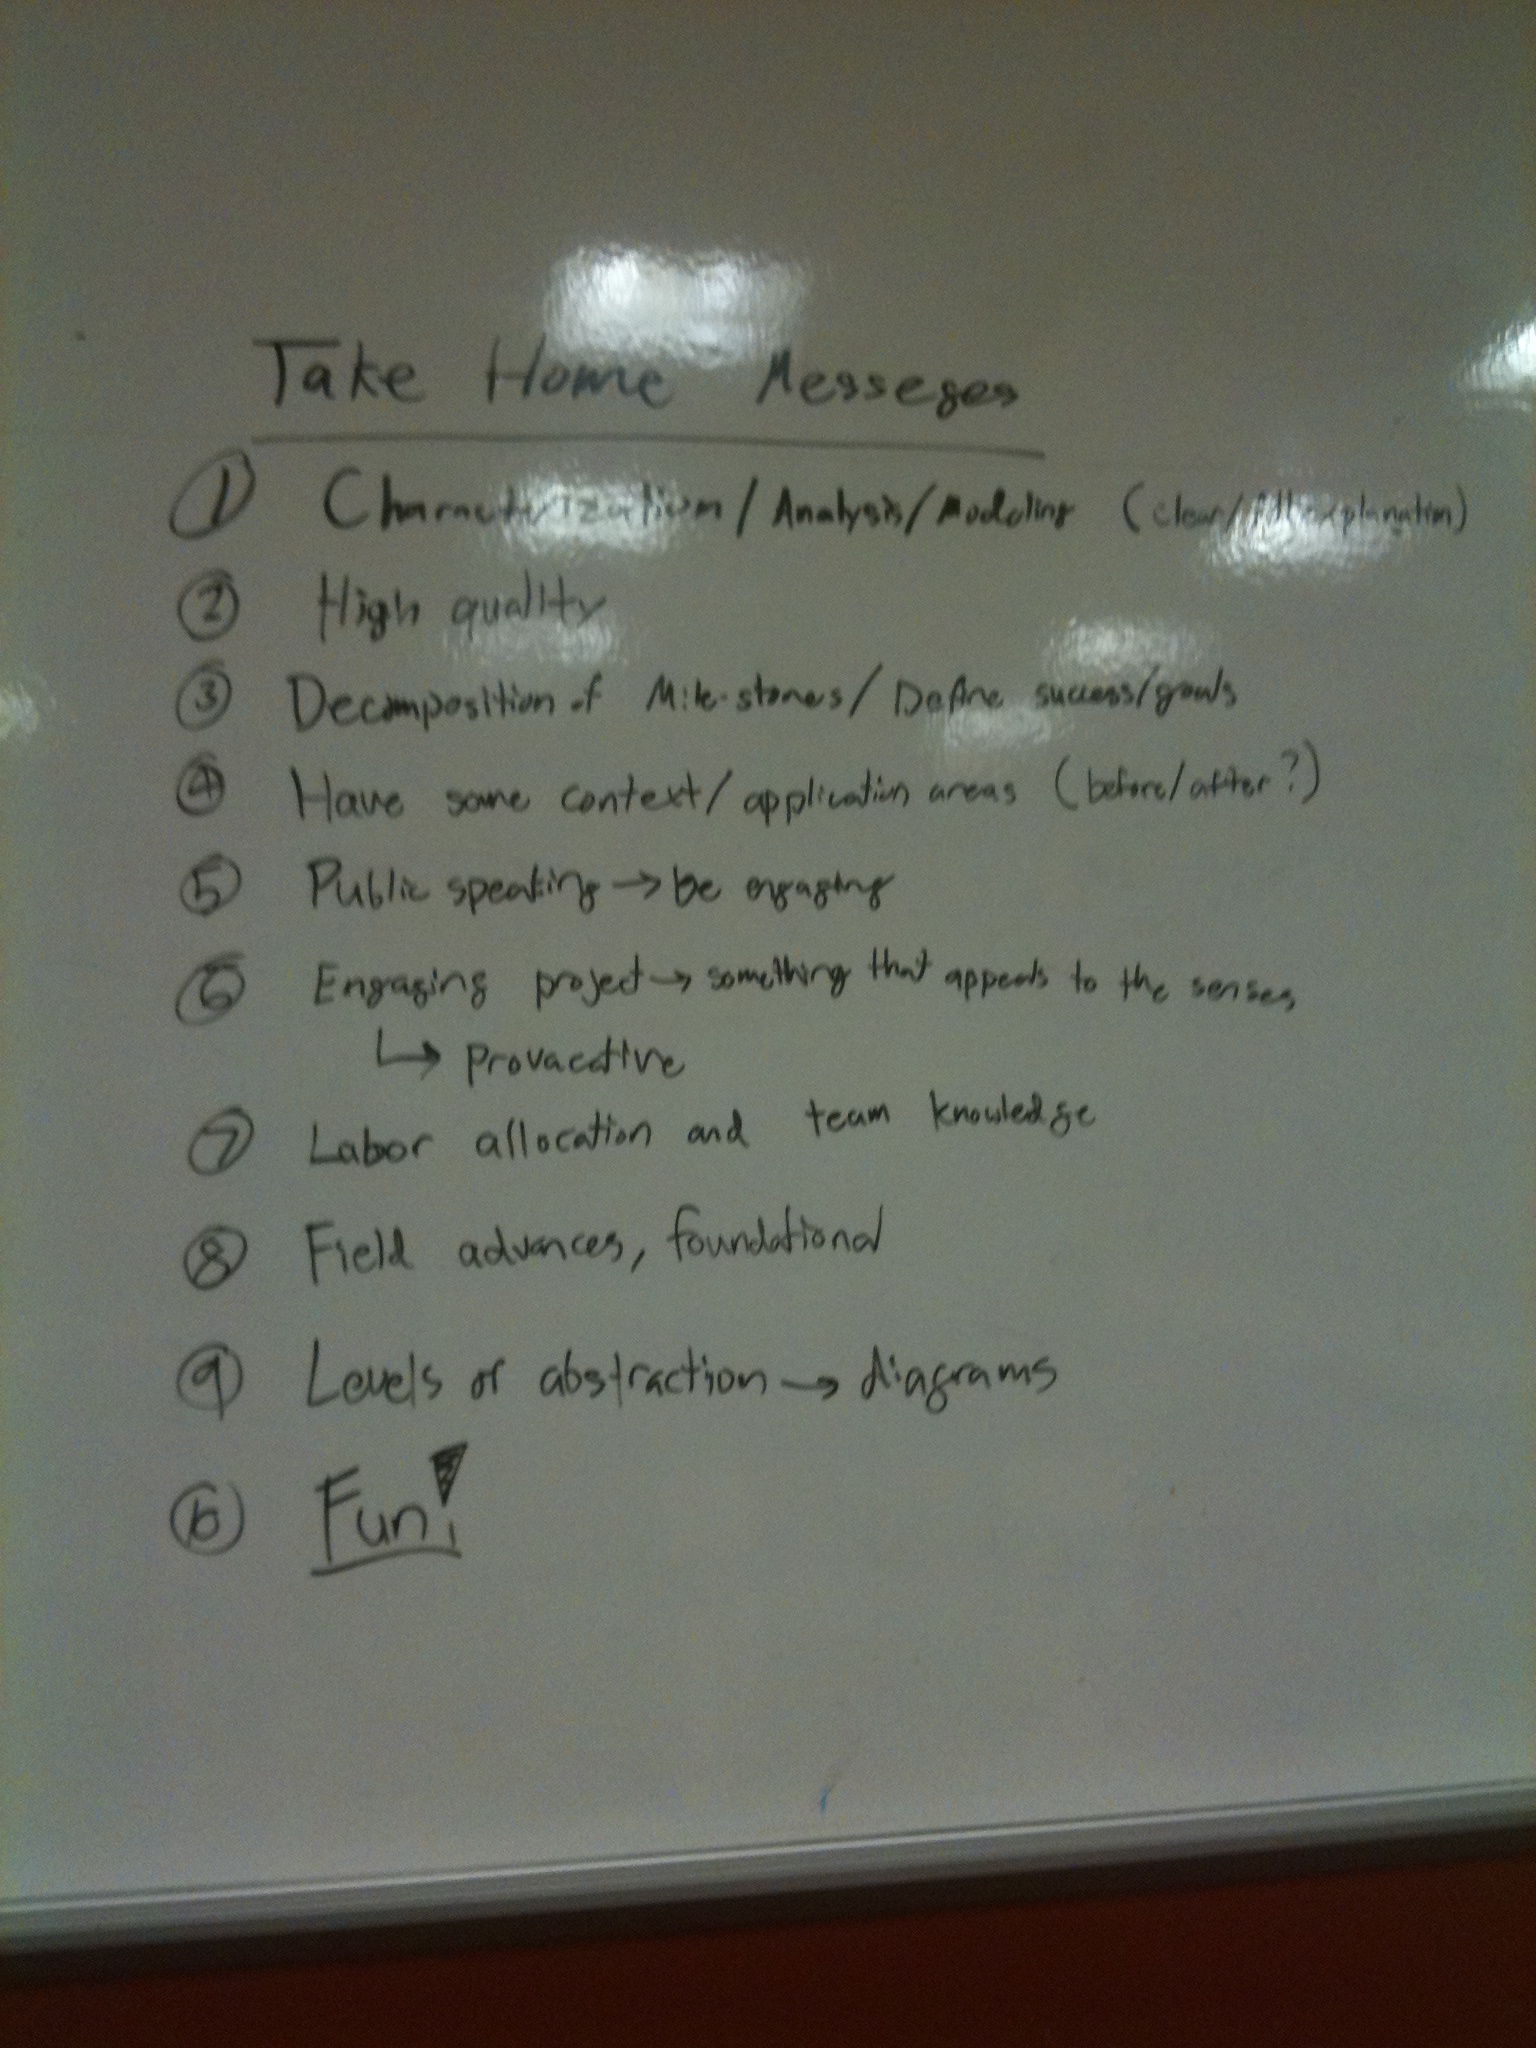 Take Home Messeges
① Characterization / Analysis / Modeling (clear/full explanation)
② High quality
③ Decomposition of Mile-stones / Define success/goals
④ Have some context / application areas (before/after?)
⑤ Public speaking → be engaging
⑥ Engaging project → something that appeals to the senses
↳ provacative
⑦ Labor allocation and team knowledge
⑧ Field advances, foundational
⑨ Levels of abstraction → diagrams
⑩ Fun!